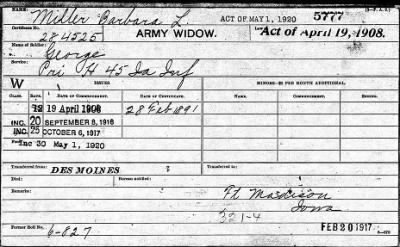 Miller Barbara L.
ACT OF MAY 1, 1920
5777
Certificate No.
284525
ARMY WIDOW.
Act of April 19, 1908.
Name of Soldier:
George
Service:
Pri H 45 Ia Inf
W
ISSUES
MINORS—$2 PER MONTH ADDITIONAL
RATE.
DATE OF COMMENCEMENT.
DATE OF CERTIFICATE.
DATE OF COMMENCEMENT.
12 19 April 1908
28 Feb 1891
INC. 20 SEPTEMBER 8, 1916
INC. 25 OCTOBER 6, 1917
Inc 30 May 1, 1920
Transferred from:
DES MOINES
Transferred to:
Died:
Bureau notified:
Remarks:
Ft. Madison
Iowa
321-4
Former Roll No.
6-827
FEB 20 1917